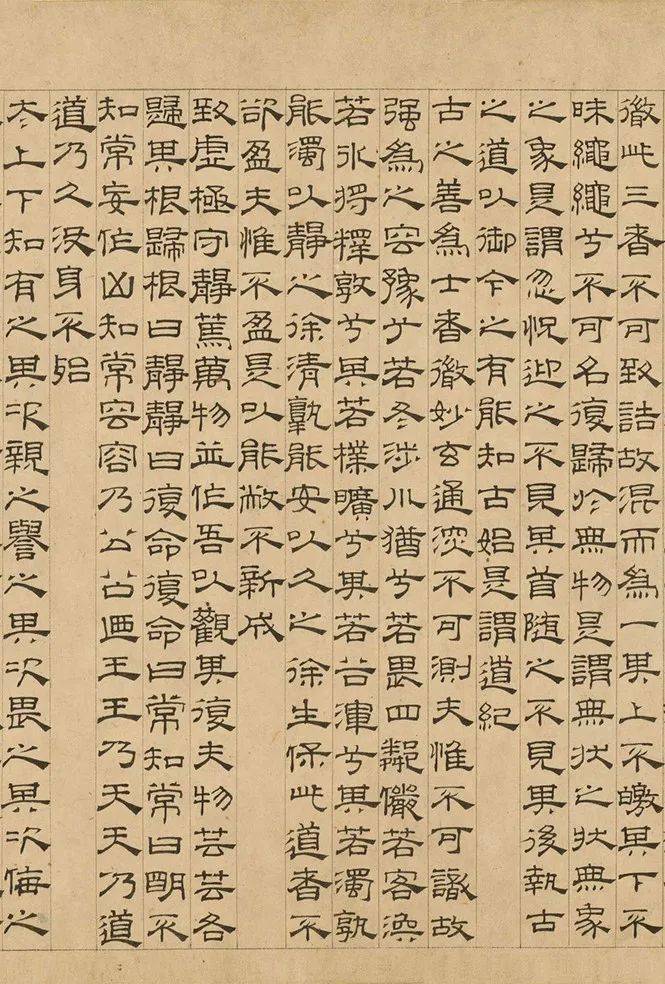 微此三者不可致詰故混而為一其上不皦其下不
昧繩繩兮不可名復歸於無物是謂無狀之狀無象
之象是謂忽怳迎之不見其首隨之不見其後執古
之道以御今之有能知古始是謂道紀
古之善為士者微妙玄通深不可測夫惟不可識故
强為之容豫兮若冬涉川猶兮若畏四鄰儼若客渙
若冰將釋敦兮其若樸曠兮其若谷渾兮其若濁孰
能濁以靜之徐清孰能安以久之徐生保此道者不
欲盈夫惟不盈是以能敝不新成
致虛極守靜篤萬物並作吾以觀其復夫物芸芸各
歸其根歸根曰靜靜曰復命復命曰常知常曰明不
知常妄作凶知常容容乃公公迺王王乃天天乃道
道乃久没身不殆
太上下知有之其次親之譽之其次畏之其次侮之